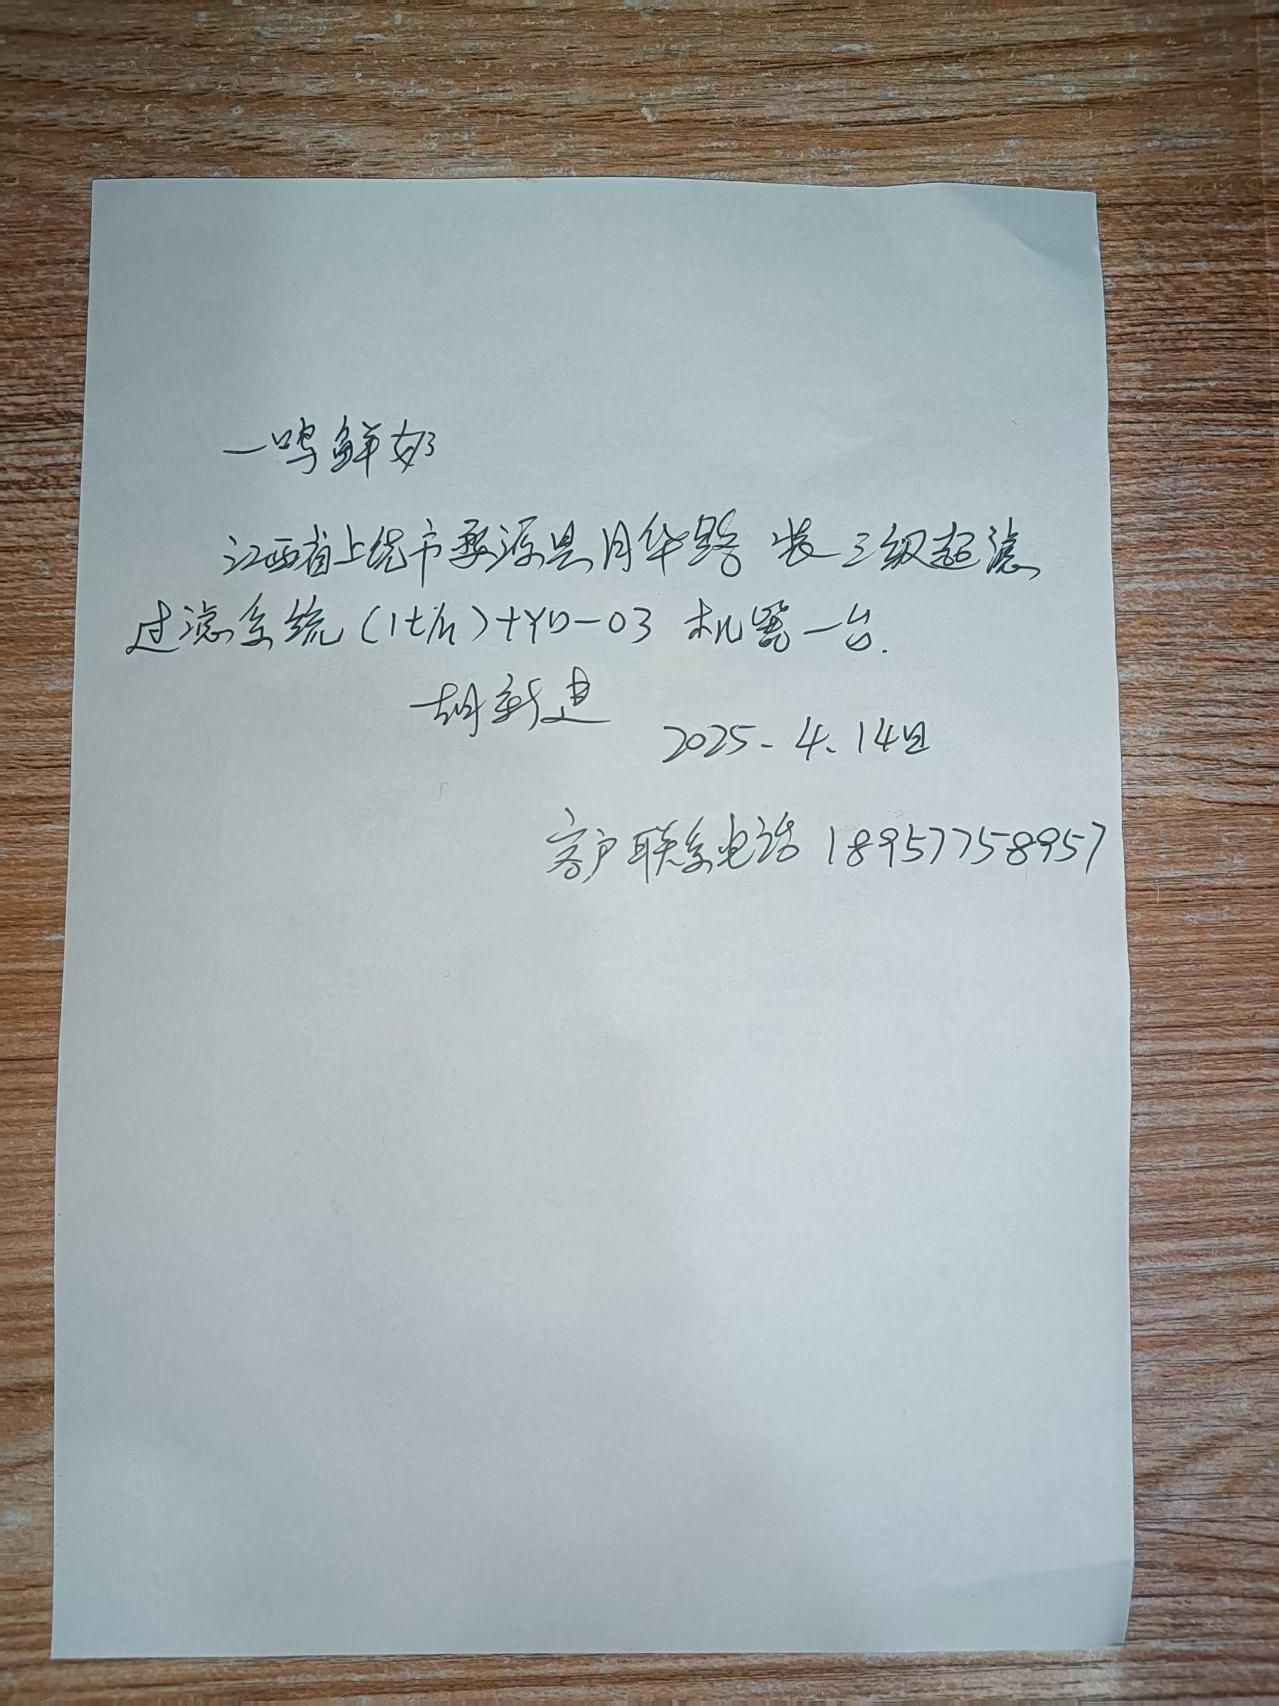 一鸣鲜奶
江西省上饶市婺源县月华路 装三级超滤
过滤系统(1t/h)+YD-03 机器一台.
胡新建
2025.4.14日
客户联系电话 18957758957